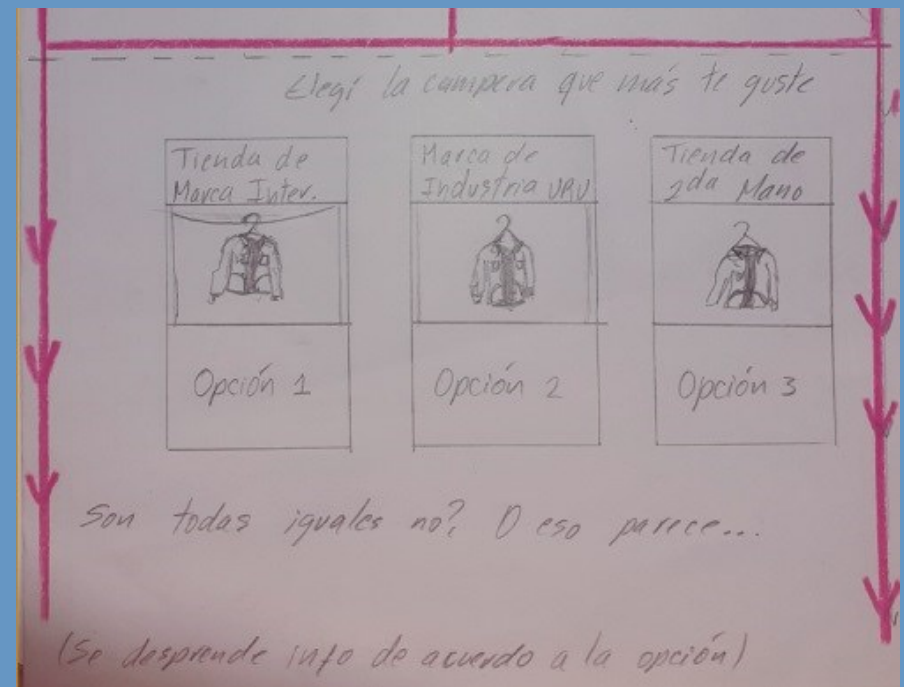 Elegí la campera que más te guste
Tienda de
Marca Inter.
Marca de
Industria URU
Tienda de
2da Mano
Opción 1
Opción 2
Opción 3
Son todas iguales no? O eso parece...
(Se desprende info de acuerdo a la opción)